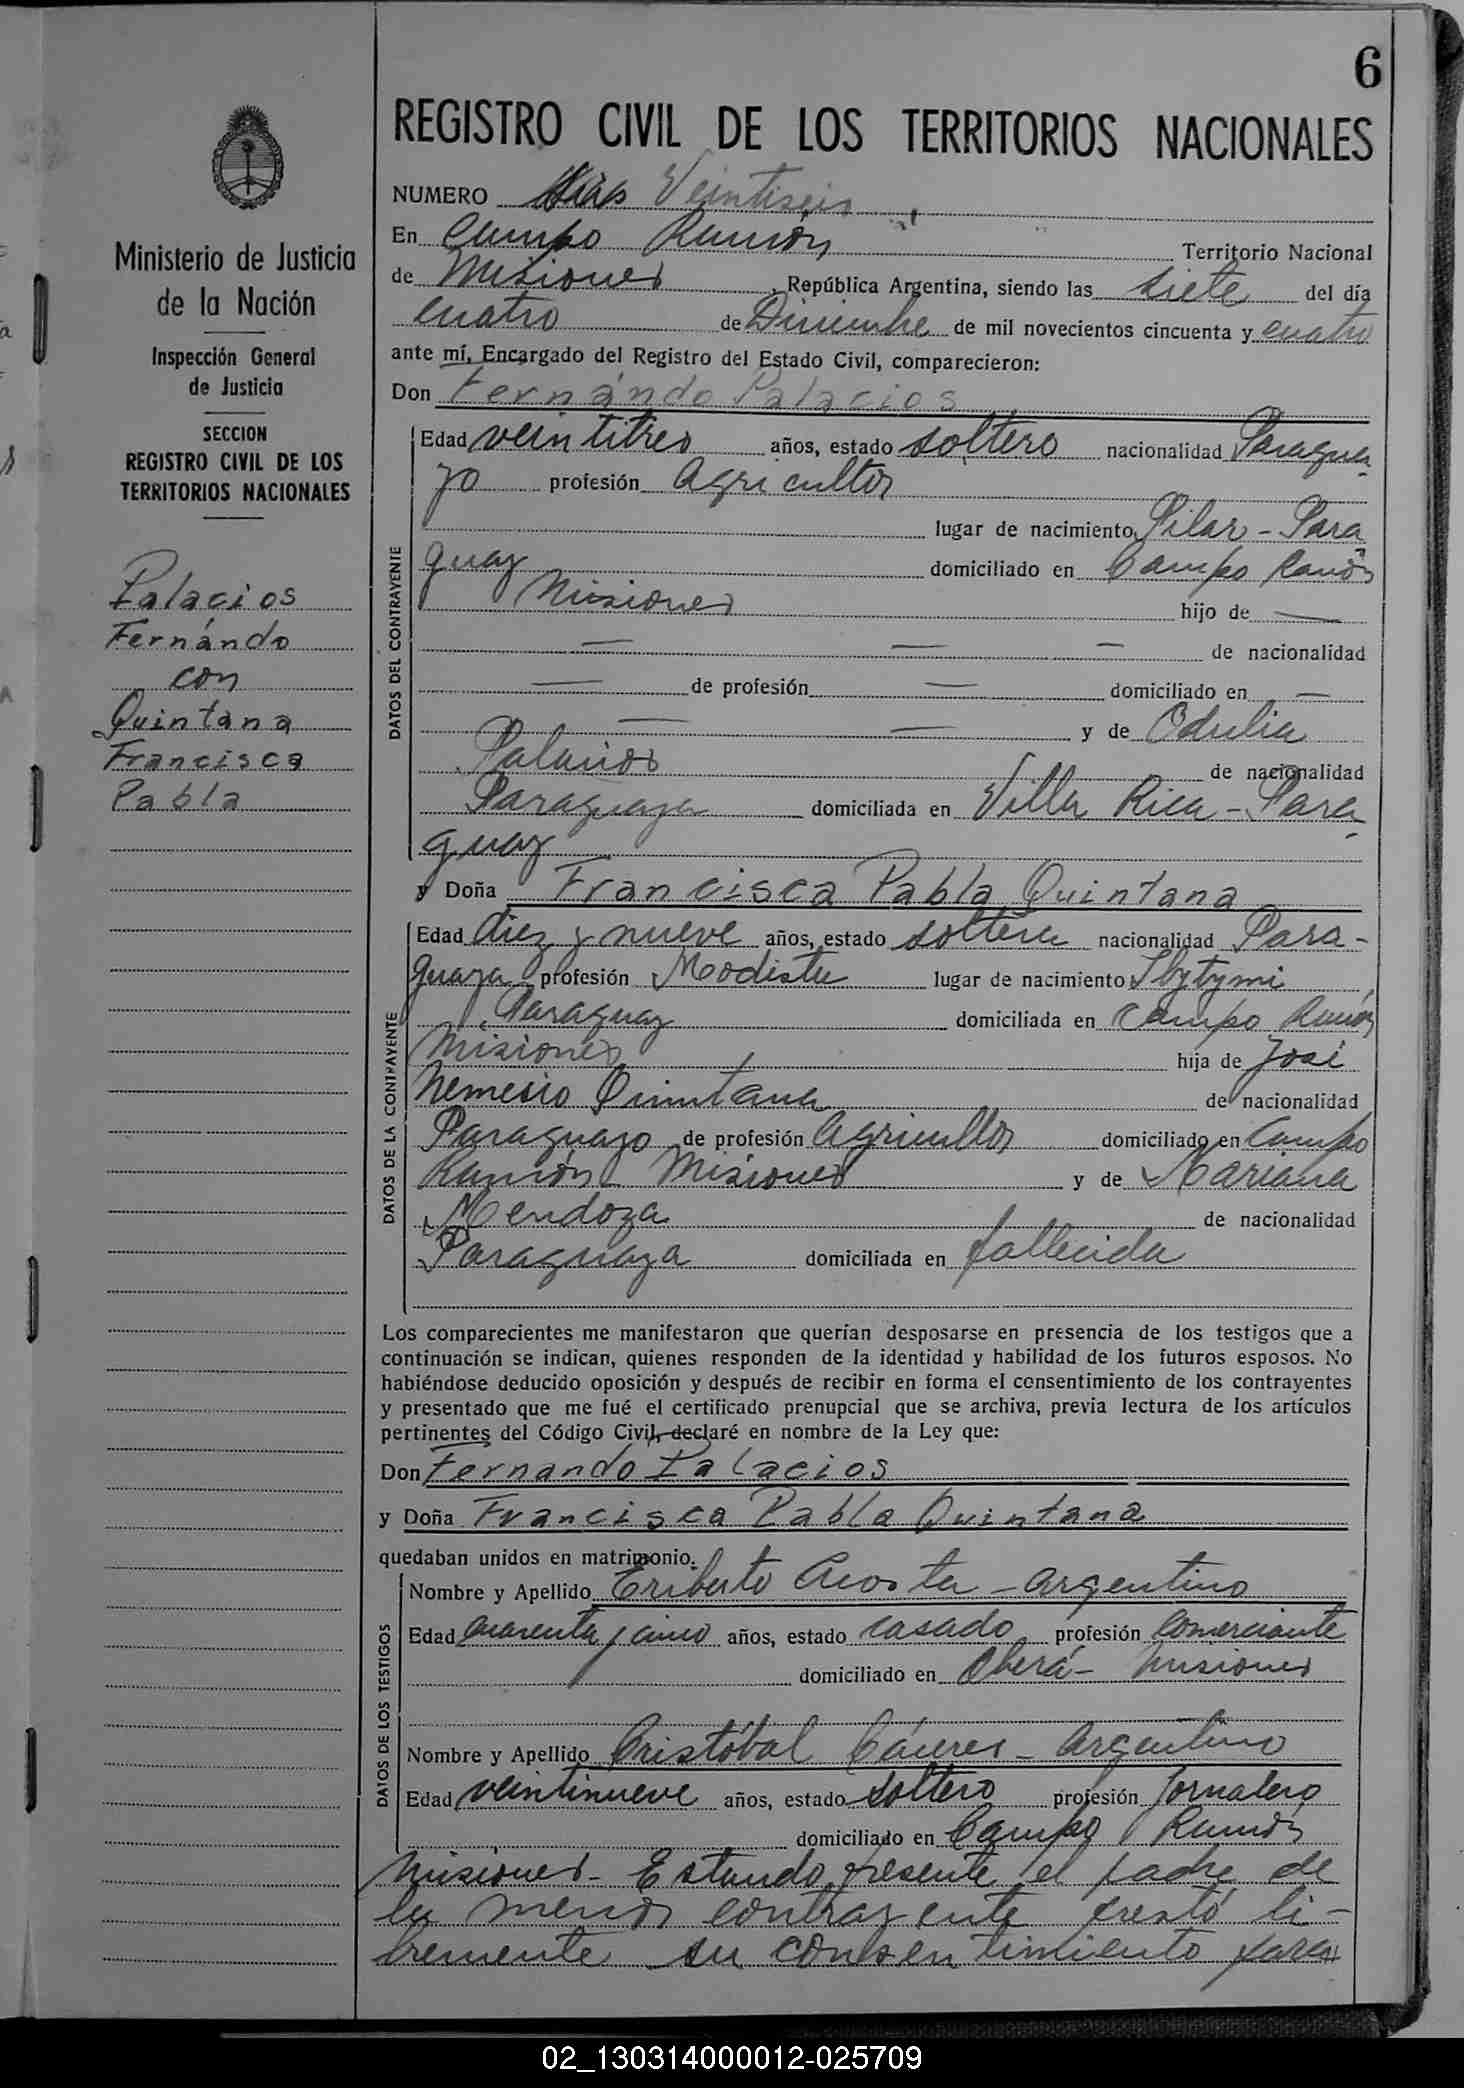 6
REGISTRO CIVIL DE LOS TERRITORIOS NACIONALES
Ministerio de Justicia
de la Nación
Inspección General
de Justicia
SECCION
REGISTRO CIVIL DE LOS
TERRITORIOS NACIONALES
Palacios
Fernándo
con
Quintana
Francisca
Pabla
NUMERO Veintiseis
En Campo Ramón Territorio Nacional
de Misiones, República Argentina, siendo las siete del día
cuatro de Diciembre de mil novecientos cincuenta y cuatro
ante mí, Encargado del Registro del Estado Civil, comparecieron:
Don Fernándo Palacios
DATOS DEL CONTRAYENTE
Edad veintitres años, estado soltero nacionalidad Paragua
yo profesión Agricultor
lugar de nacimiento Pilar - Para
guay domiciliado en Campo Ramón
Misiones hijo de —
— — — de nacionalidad
— de profesión — domiciliado en —
— — y de Odulia
Palacios de nacionalidad
Paraguaya domiciliada en Villa Rica - Para
guay
y Doña Francisca Pabla Quintana
DATOS DE LA CONTRAYENTE
Edad diez y nueve años, estado soltera nacionalidad Para-
guaya profesión Modista lugar de nacimiento Ybytymi
Paraguay domiciliada en Campo Ramón
Misiones hija de José
Nemesio Quintana de nacionalidad
Paraguayo de profesión Agricultor domiciliado en Campo
Ramón Misiones y de Mariana
Mendoza de nacionalidad
Paraguaya domiciliada en fallecida
Los comparecientes me manifestaron que querían desposarse en presencia de los testigos que a
continuación se indican, quienes responden de la identidad y habilidad de los futuros esposos. No
habiéndose deducido oposición y después de recibir en forma el consentimiento de los contrayentes
y presentado que me fué el certificado prenupcial que se archiva, previa lectura de los artículos
pertinentes del Código Civil, declaré en nombre de la Ley que:
Don Fernando Palacios
y Doña Francisca Pabla Quintana
quedaban unidos en matrimonio.
DATOS DE LOS TESTIGOS
Nombre y Apellido Eriberto Acosta - Argentino
Edad cuarenta y cinco años, estado casado profesión Comerciante
domiciliado en Oberá - Misiones
Nombre y Apellido Cristóbal Cáceres - Argentino
Edad veintinueve años, estado soltero profesión Jornalero
domiciliado en Campo Ramón
Misiones - Estando presente el padre de
la menor contrayente prestó li-
bremente su consentimiento para
02_130314000012-025709